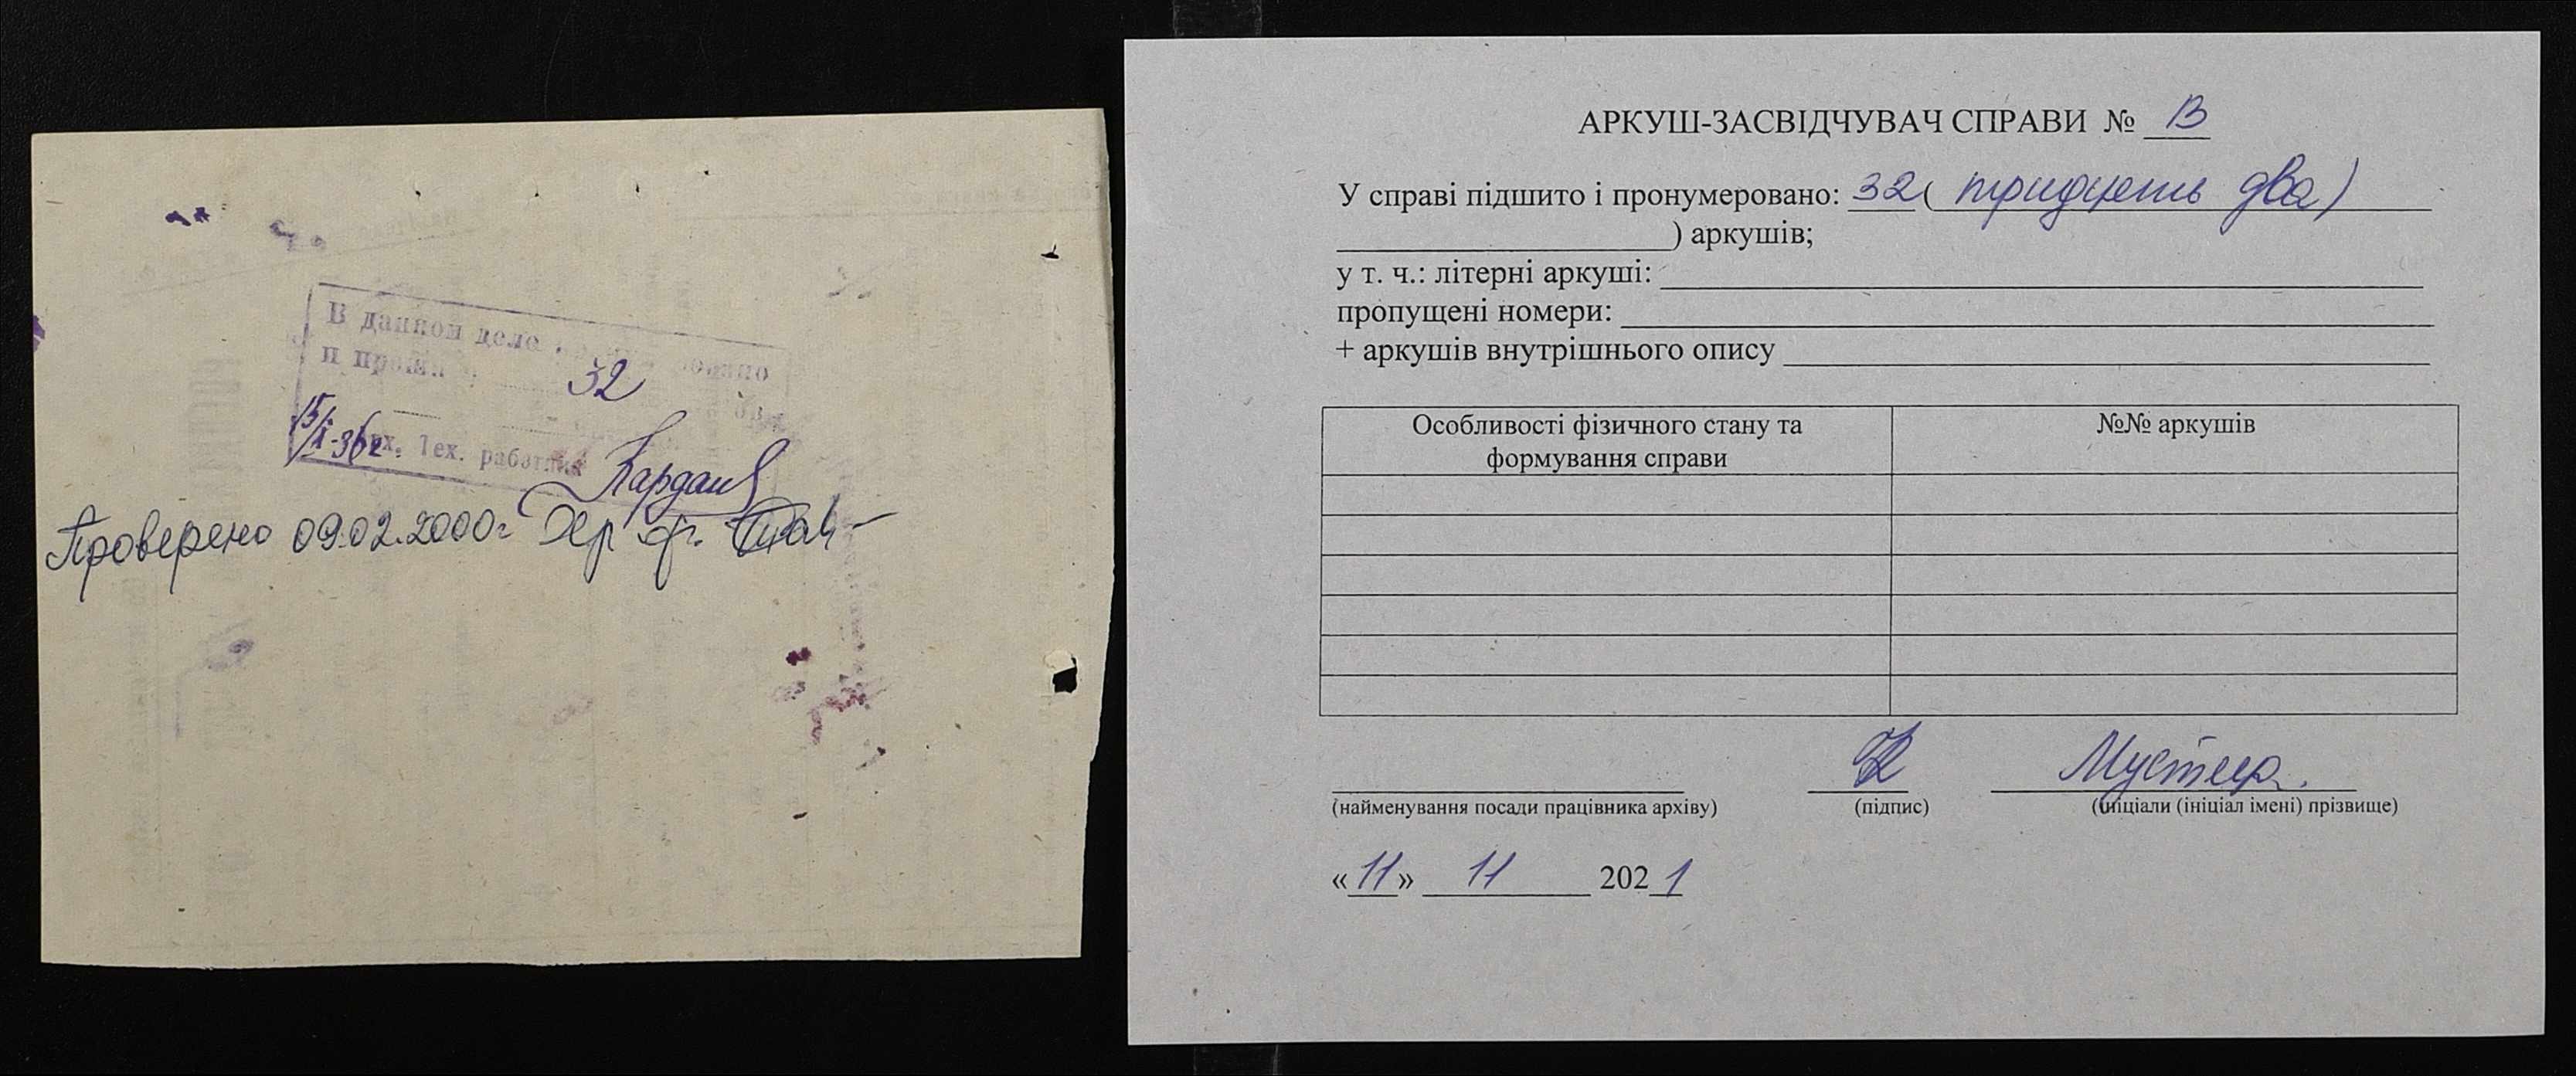 В данном деле
и
32
Арх. Тех. работник
Проверено 09.02.2000г
АРКУШ-ЗАСВІДЧУВАЧ СПРАВИ № 13
У справі підшито і пронумеровано: 32 ( тридцять два)
) аркушів;
у т. ч.: літерні аркуші:
пропущені номери:
+ аркушів внутрішнього опису
Особливості фізичного стану та
формування справи
№№ аркушів
(найменування посади працівника архіву)
(підпис)
(ініціали (ініціал імені) прізвище)
« 11 » 11 2021